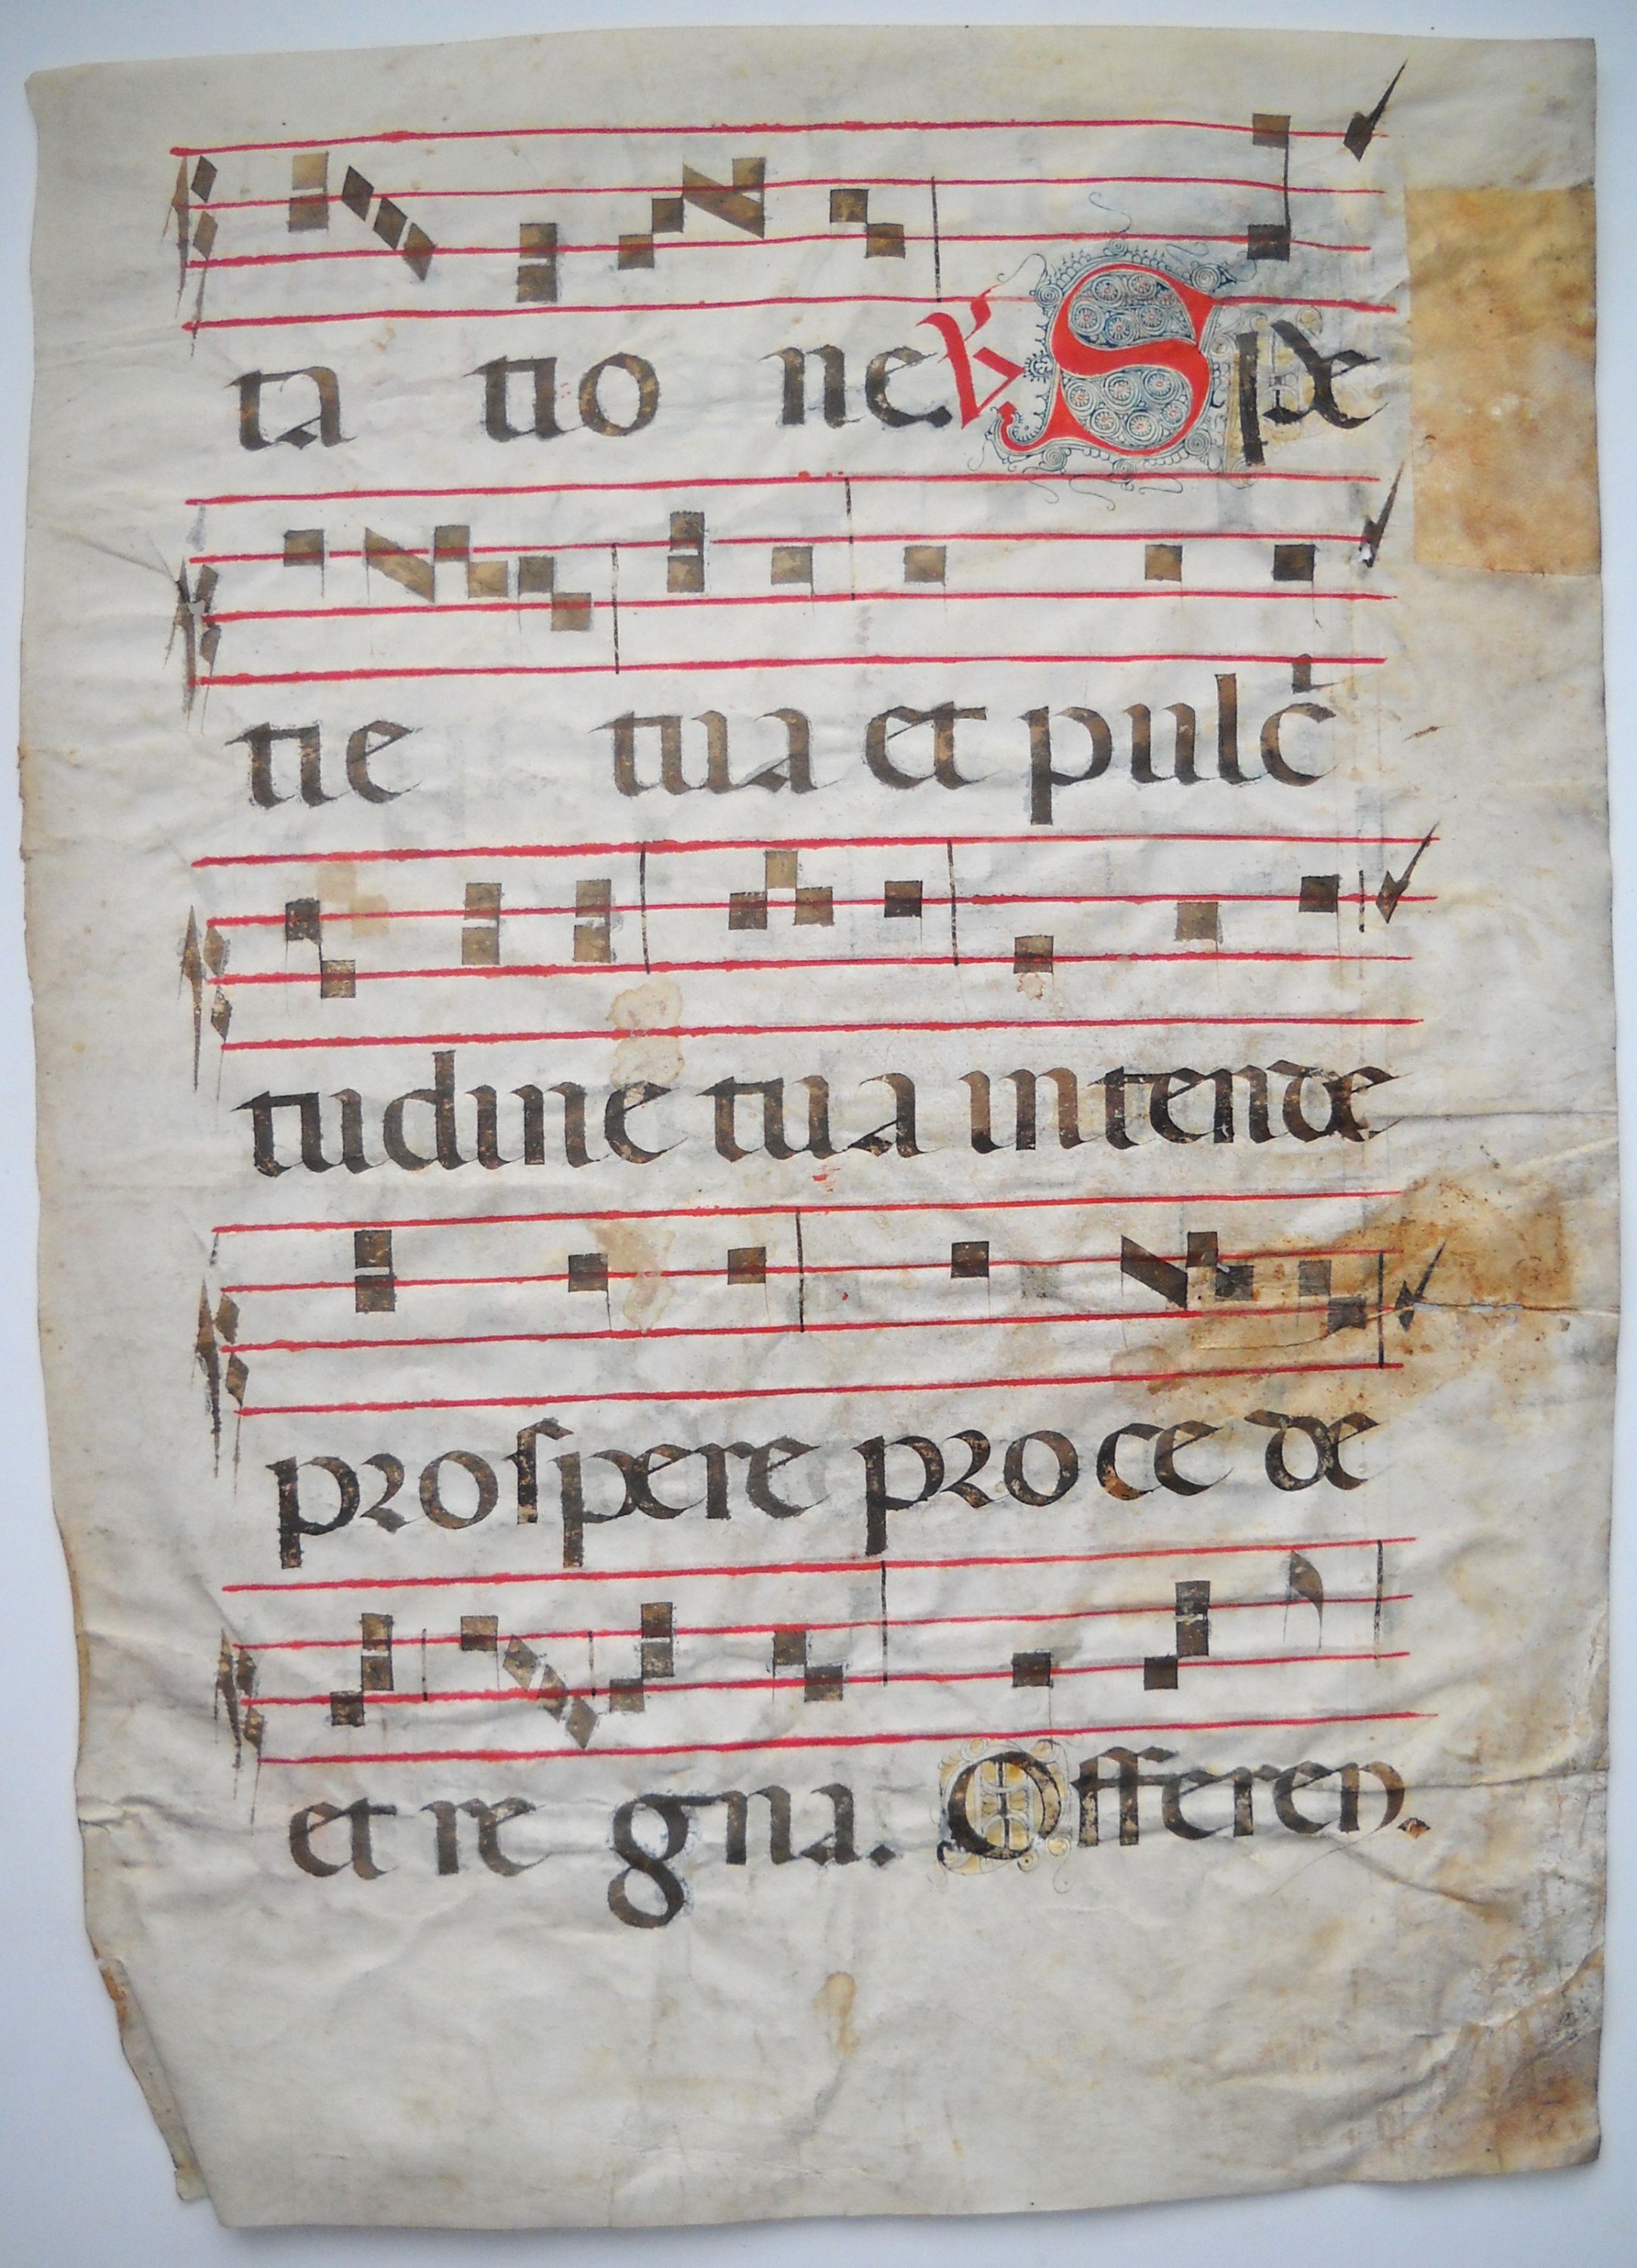 ta tio ne. ℟. Spe
tie tua et pulcͥ
tudine tua intende
proſpere pro ce de
et re gna. Offeren.